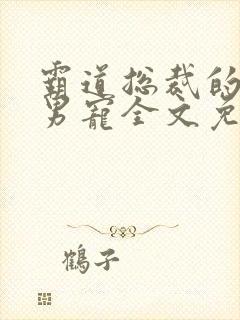 霸道总裁的
男宠全文免
鹤子